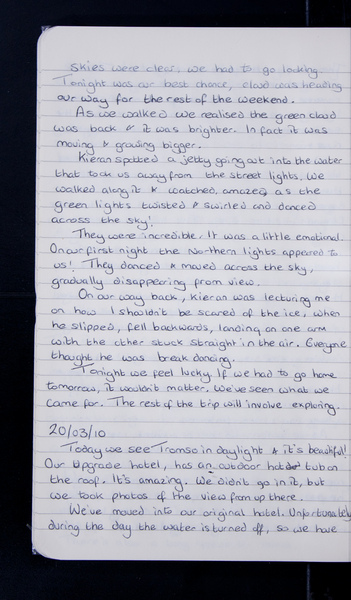 Skies were clear, we had to go looking
Tonight was our best chance, cloud was heading
our way for the rest of the weekend.
As we walked we realised the green cloud
was back & it was brighter. In fact it was
moving & growing bigger.
Kieran spotted a jetty going out into the water
that took us away from the street lights. We
walked along it & watched, amazed, as the
green lights twisted & swirled and danced
across the sky!
They were incredible. It was a little emotional.
On our first night the Northern lights appeared to
us! They danced & moved across the sky,
gradually disappearing from view.
On our way back, Kieran was lecturing me
on how I shouldn't be scared of the ice, when
he slipped, fell backwards, landing on one arm
with the other stuck straight in the air. Everyone
thought he was break dancing.
Tonight we feel lucky. If we had to go home
tomorrow, it wouldn't matter. We've seen what we
came for. The rest of the trip will involve exploring.
20/03/10
Today we see Tromso in daylight & it's beautiful!
Our upgrade hotel, has an outdoor hot tub on
the roof. It's amazing. We didn't go in it, but
we took photos of the view from up there.
We've moved into our original hotel. Unfortunately
during the day the water is turned off, so we have